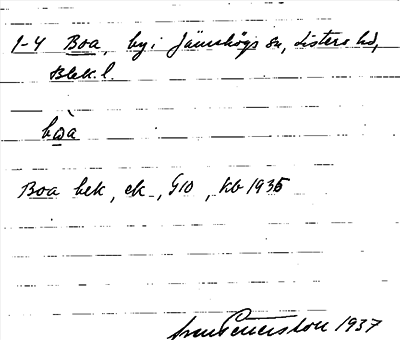 1-4 Boa, by i Jämshögs sn, Listers hd,
Blek. l.
bωà
Boa bek, ek, G10, kb 1935
1937